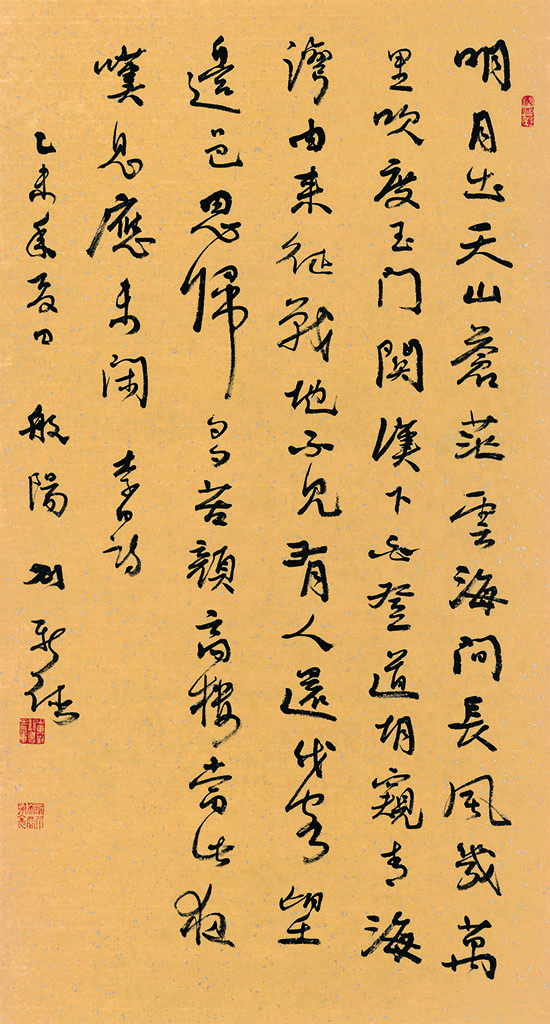 明月出天山蒼茫雲海間長風幾萬
里吹度玉門関漢下白登道胡窺青海
灣由来征戰地不見有人還戍客望
邊邑思歸多苦顔高樓當此夜
嘆息應未閑 李白詩
乙未年夏日 般陽